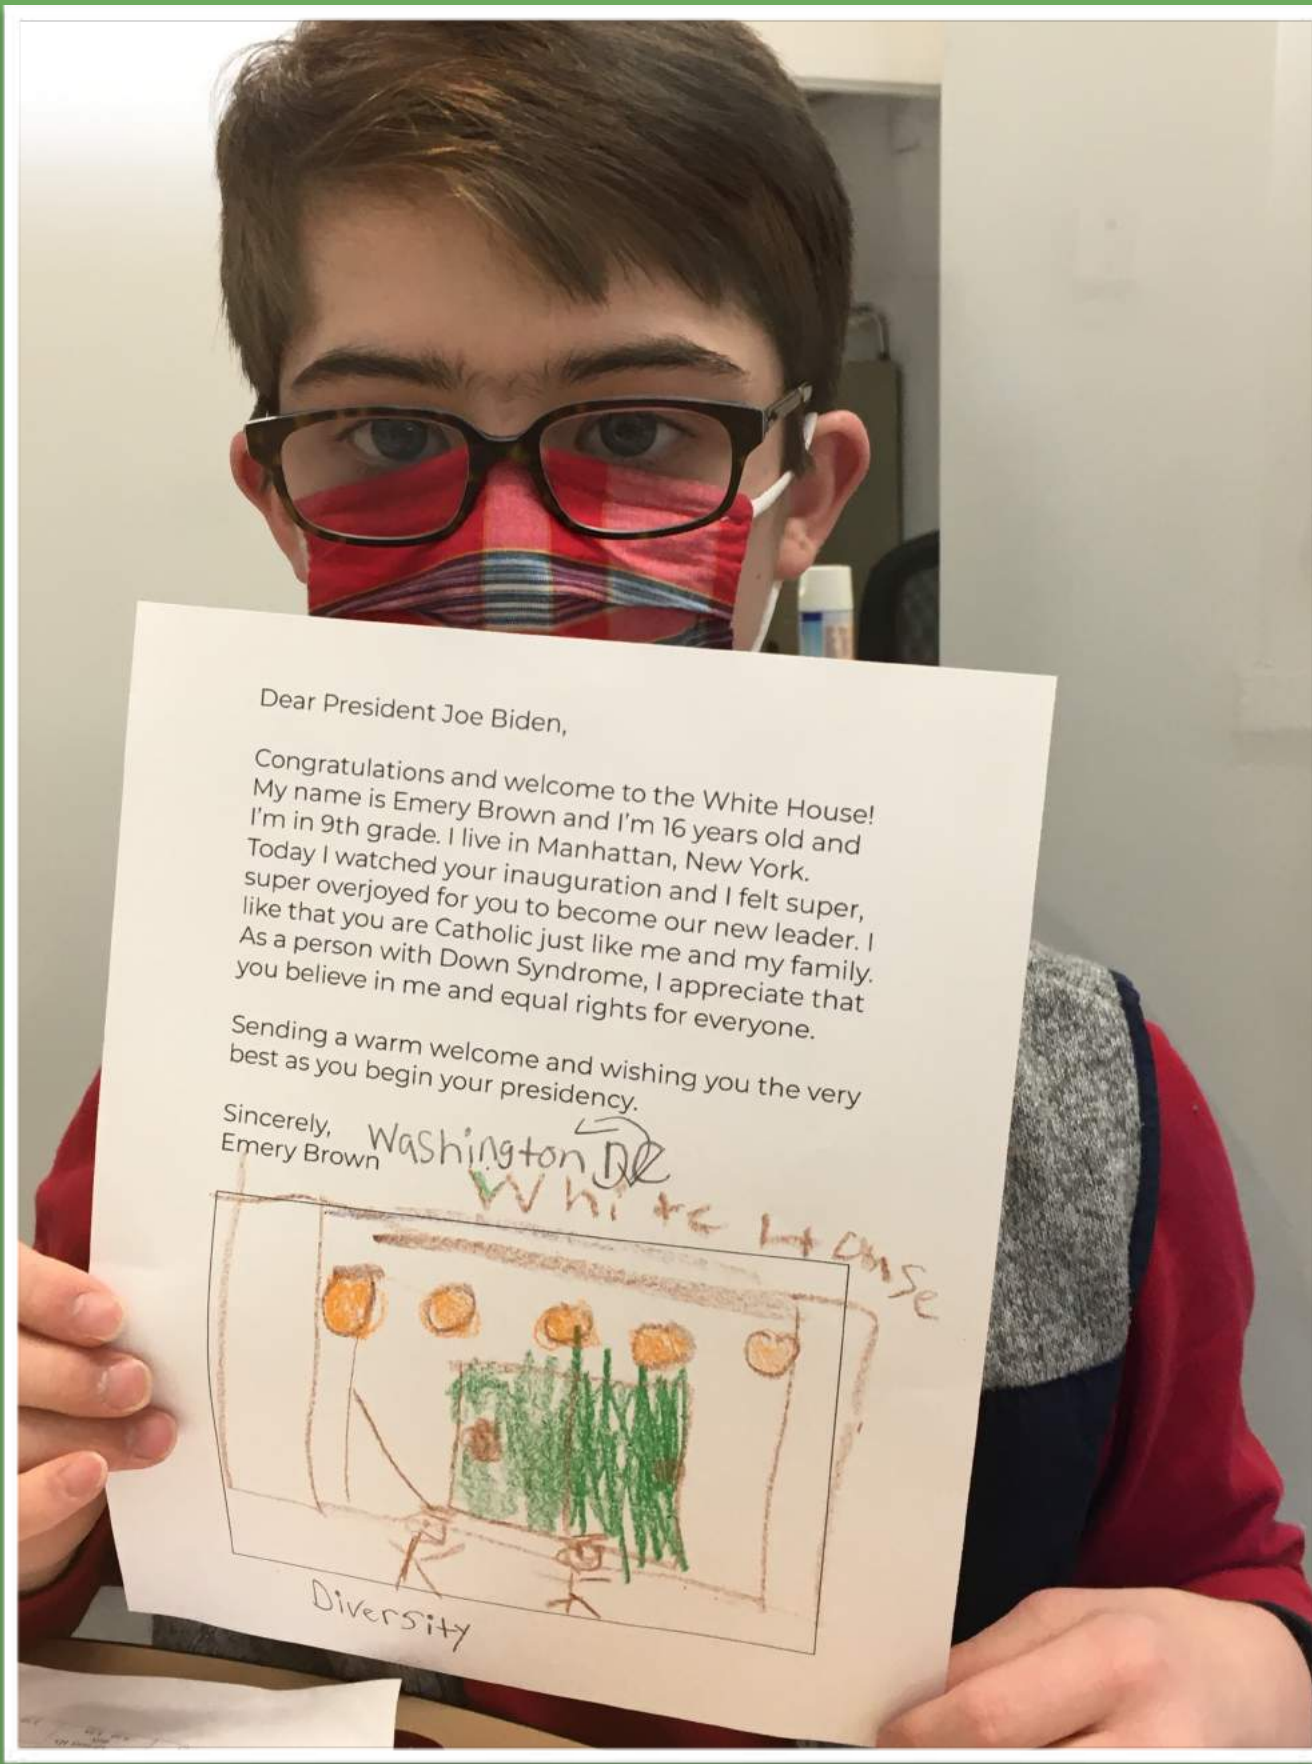 Dear President Joe Biden,
Congratulations and welcome to the White House!
My name is Emery Brown and I'm 16 years old and
I'm in 9th grade. I live in Manhattan, New York.
Today I watched your inauguration and I felt super,
super overjoyed for you to become our new leader. I
like that you are Catholic just like me and my family.
As a person with Down Syndrome, I appreciate that
you believe in me and equal rights for everyone.
Sending a warm welcome and wishing you the very
best as you begin your presidency.
Sincerely,
Emery Brown
Washington DC
White House
Diversity